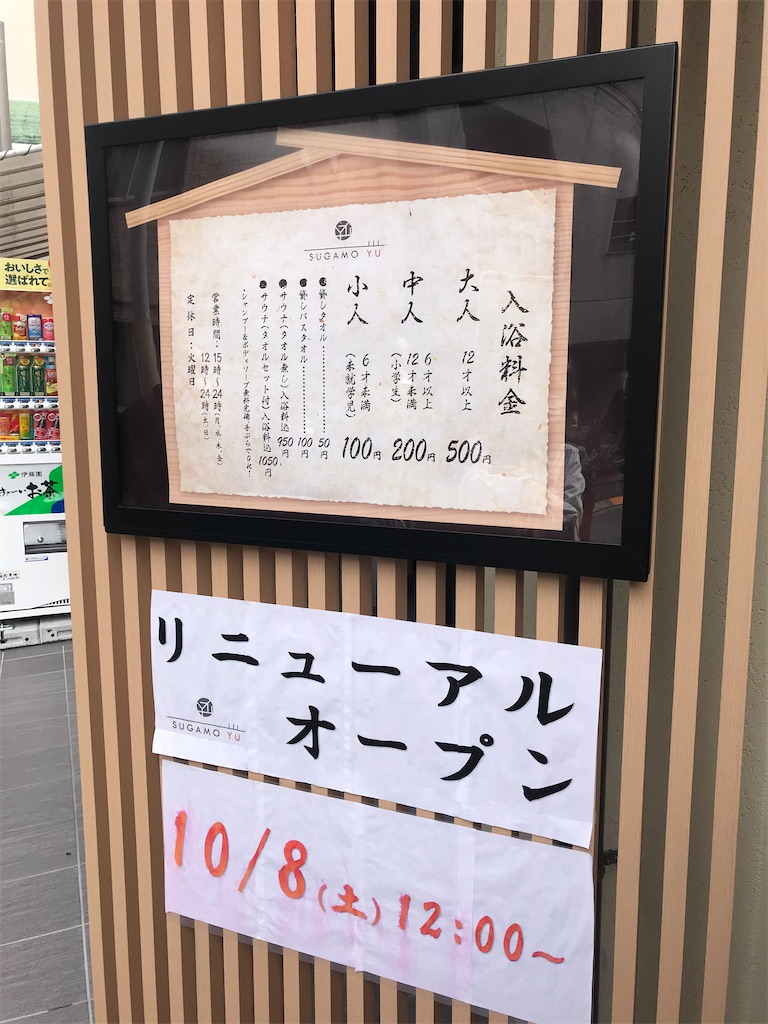 SUGAMO YU
入浴料金
大人 12才以上 500円
中人 6才以上12才未満(小学生) 200円
小人 6才未満(未就学児) 100円
貸しタオル………………50円
貸しバスタオル……………100円
サウナ(タオル無し)入浴料込 950円
サウナ(タオルセット付)入浴料込 1050円
・シャンプー&ボディソープ無料完備 手ぶらでOK!
営業時間:15時〜24時(月、水、木、金)
12時〜24時(土、日)
定休日:火曜日
リニューアル
オープン
SUGAMO YU
10/8(土)12:00〜
おいしさで
選ばれて
伊藤園
お〜いお茶